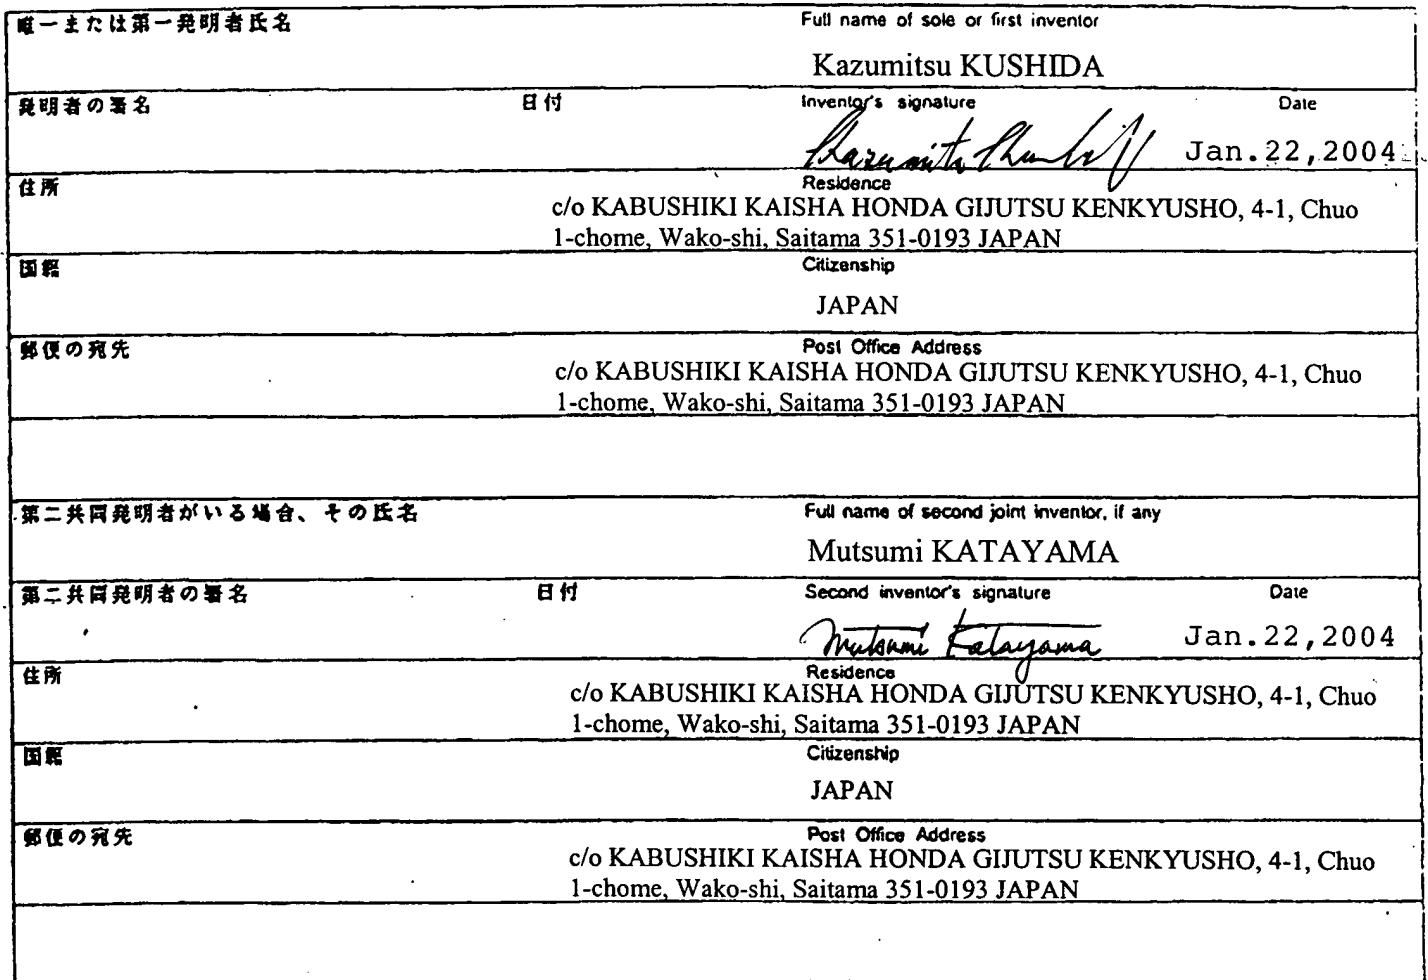 唯一または第一発明者氏名 Full name of sole or first inventor
Kazumitsu KUSHIDA
発明者の署名 日付 Inventor's signature Date
Jan.22,2004
住所 Residence
c/o KABUSHIKI KAISHA HONDA GIJUTSU KENKYUSHO, 4-1, Chuo
1-chome, Wako-shi, Saitama 351-0193 JAPAN
国籍 Citizenship
JAPAN
郵便の宛先 Post Office Address
c/o KABUSHIKI KAISHA HONDA GIJUTSU KENKYUSHO, 4-1, Chuo
1-chome, Wako-shi, Saitama 351-0193 JAPAN
第二共同発明者がいる場合、その氏名 Full name of second joint inventor, if any
Mutsumi KATAYAMA
第二共同発明者の署名 日付 Second inventor's signature Date
Mutsumi Katayama Jan.22,2004
住所 Residence
c/o KABUSHIKI KAISHA HONDA GIJUTSU KENKYUSHO, 4-1, Chuo
1-chome, Wako-shi, Saitama 351-0193 JAPAN
国籍 Citizenship
JAPAN
郵便の宛先 Post Office Address
c/o KABUSHIKI KAISHA HONDA GIJUTSU KENKYUSHO, 4-1, Chuo
1-chome, Wako-shi, Saitama 351-0193 JAPAN